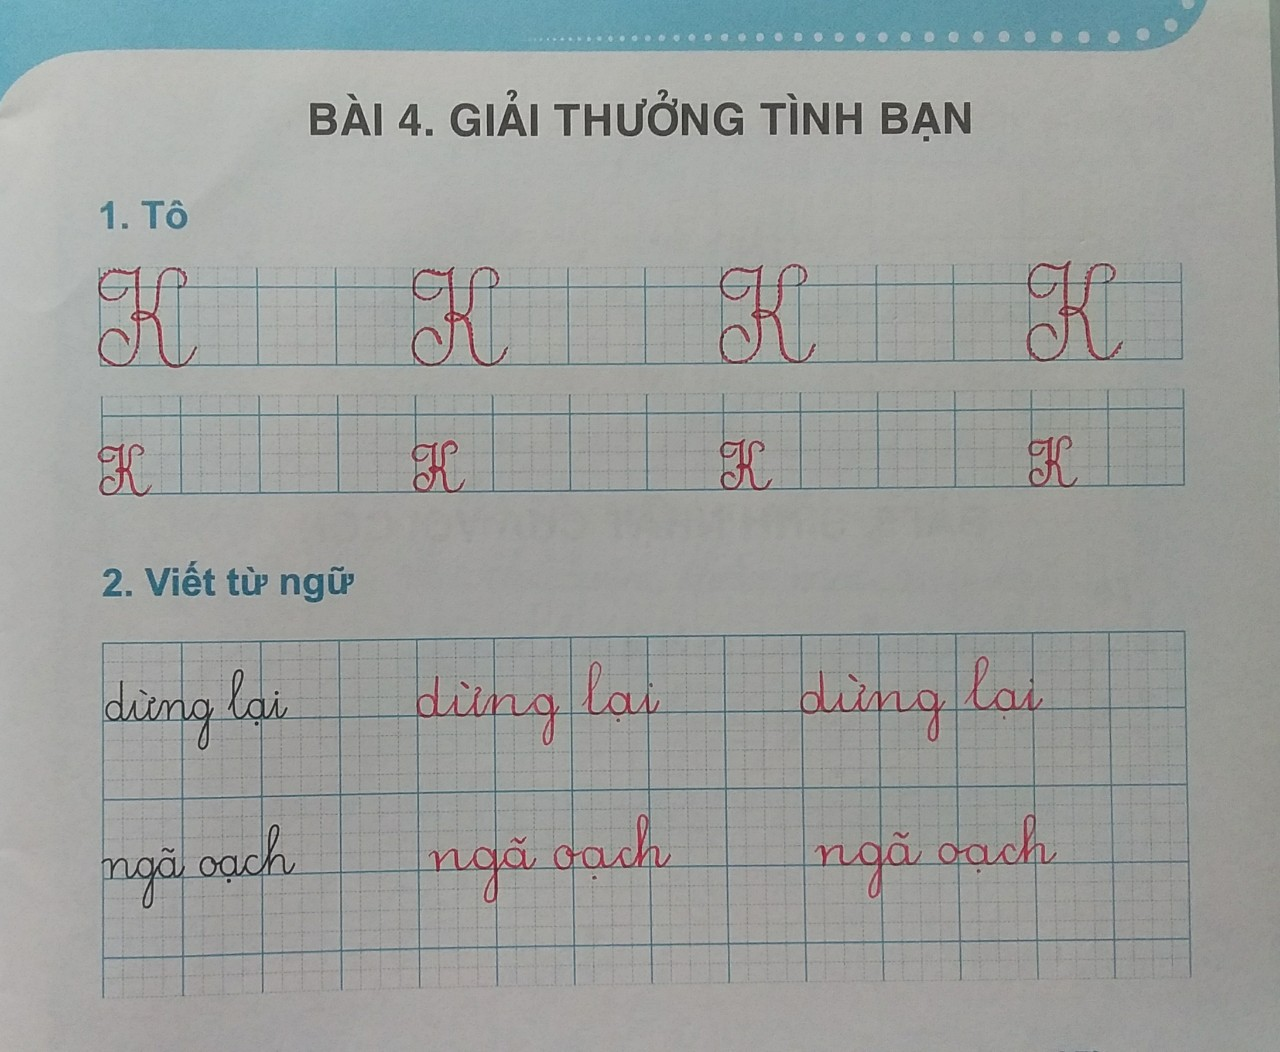 BÀI 4. GIẢI THƯỞNG TÌNH BẠN
1. Tô
K K K K
K K K K
2. Viết từ ngữ
dừng lại dừng lại dừng lại
ngã oạch ngã oạch ngã oạch